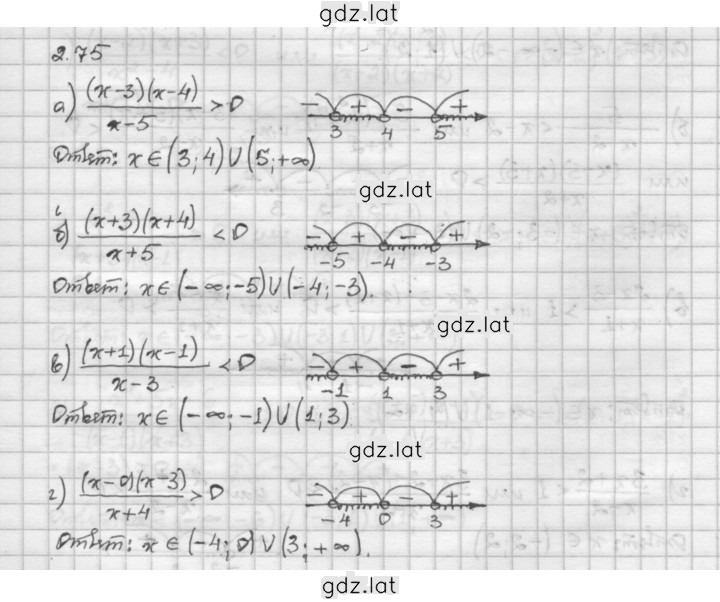 gdz.lat
2.75
а) (x-3)(x-4)/(x-5) > 0 - + - + 3 4 5
Ответ: x ∈ (3; 4) ∪ (5; +∞)
gdz.lat
б) (x+3)(x+4)/(x+5) < 0 - + - + -5 -4 -3
Ответ: x ∈ (-∞; -5) ∪ (-4; -3).
gdz.lat
в) (x+1)(x-1)/(x-3) < 0 - + - + -1 1 3
Ответ: x ∈ (-∞; -1) ∪ (1; 3).
gdz.lat
г) (x-0)(x-3)/(x+4) > 0 - + - + -4 0 3
Ответ: x ∈ (-4; 0) ∪ (3; +∞).
gdz.lat